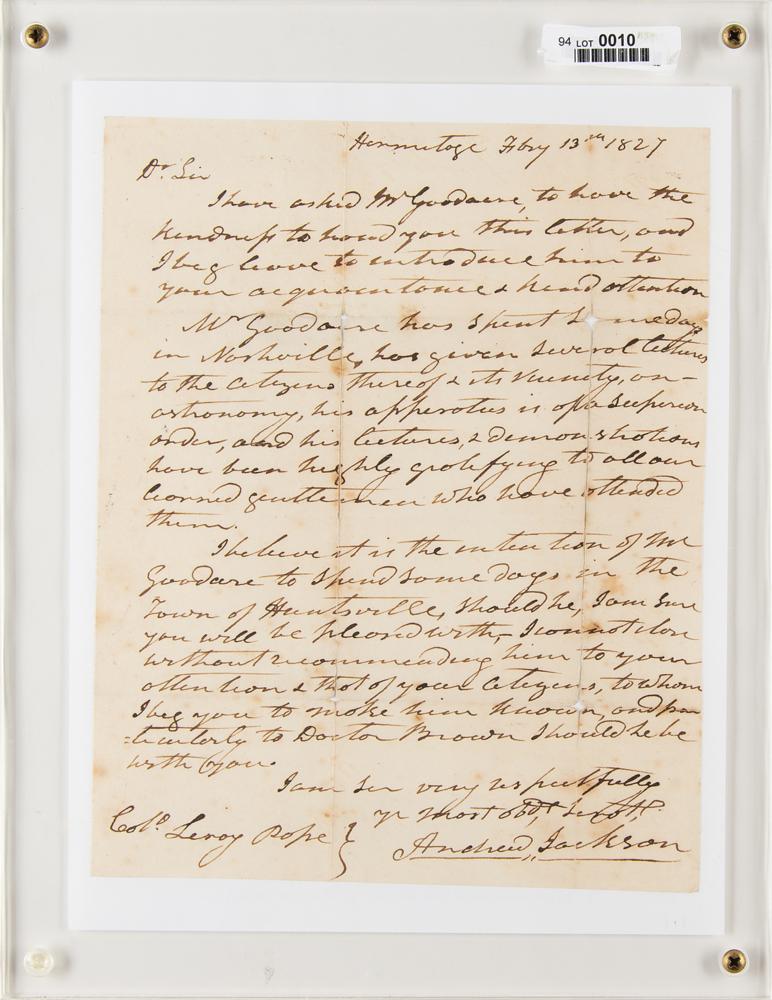 94 LOT 0010
Hermitage Fbry 13th 1827
Dr. Sir
I have asked Mr Goodacre, to have the
kindness to hand you this letter, and
I beg leave to introduce him to
your acquaintance & kind attention
Mr Goodacre has spent Some days
in Nashville, has given several lectures
to the citizens thereof & its vicinity, on-
astronomy, his apperatus is of a Superior
order, and his lectures, & demonstrations
have been highly gratifying to all our
learned gentlemen who have attended
them.
I believe it is the intention of Mr
Goodacre to spend some days in the
Town of Huntsville, should he, I am sure
you will be pleased with,- I cannot close
without recommending him to your
attention & that of your citizens, to whom
I beg you to make him known, and par
=ticularly to Doctor Brown should he be
with you.
I am Sir very respectfully
yr most obdt. Servt.
Colo. Leroy Pope }
Andrew Jackson